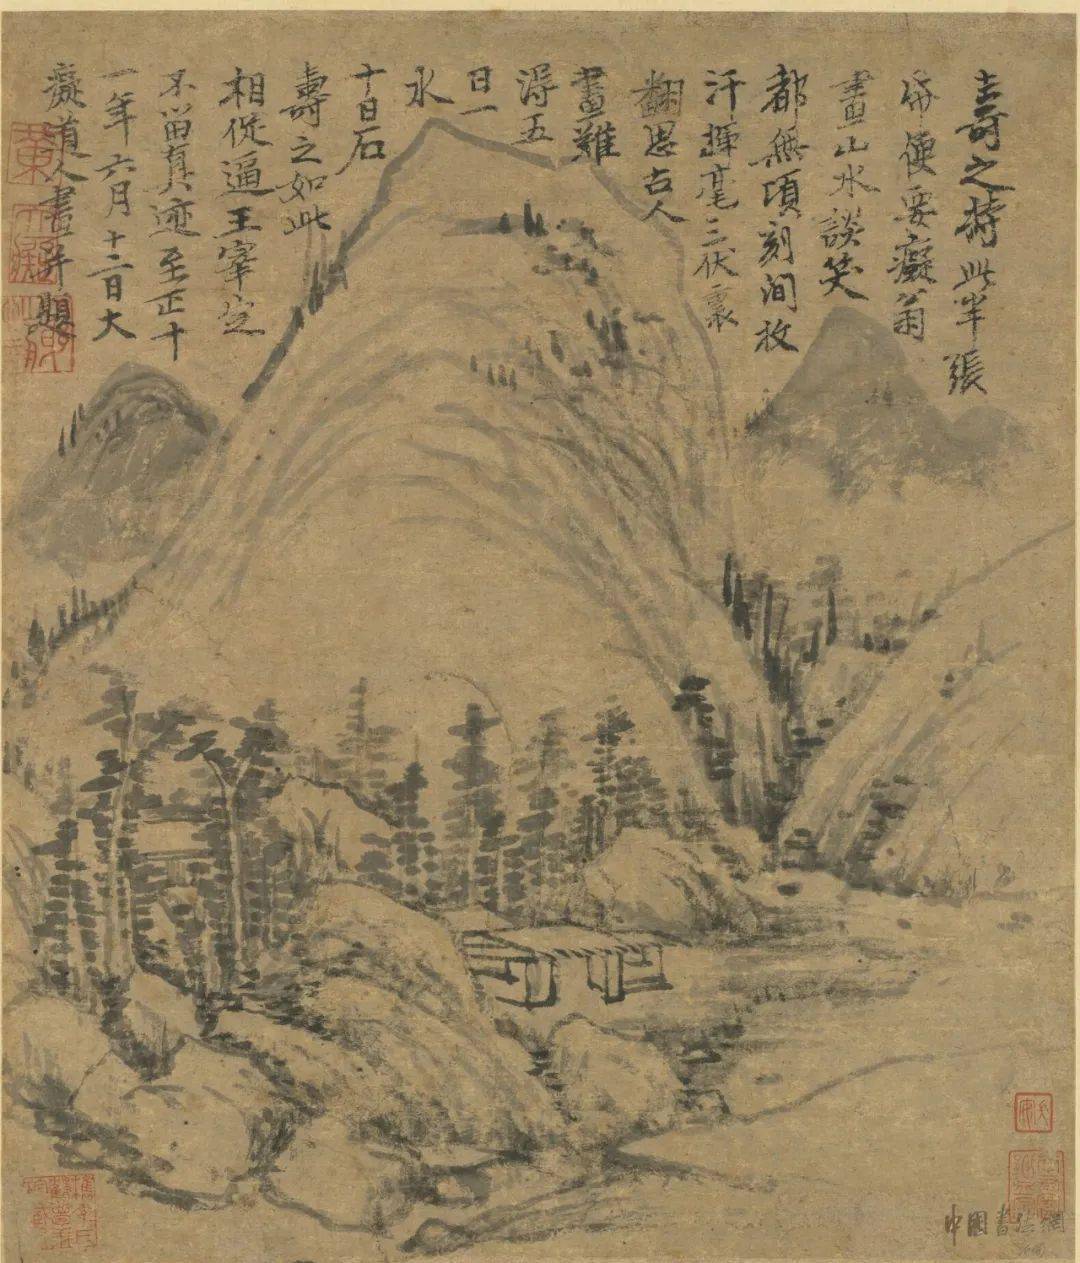 壽之持此半張
帋便要癡翁
畫山水談笑
都無頃刻間放
汗揮毫三伏裏
翻思古人
畫難
得五
日一
水
十日石
壽之如此
相從逼王宰豈
不留真迹至正十
一年六月十二日大
癡道人畫并題
中國書法網